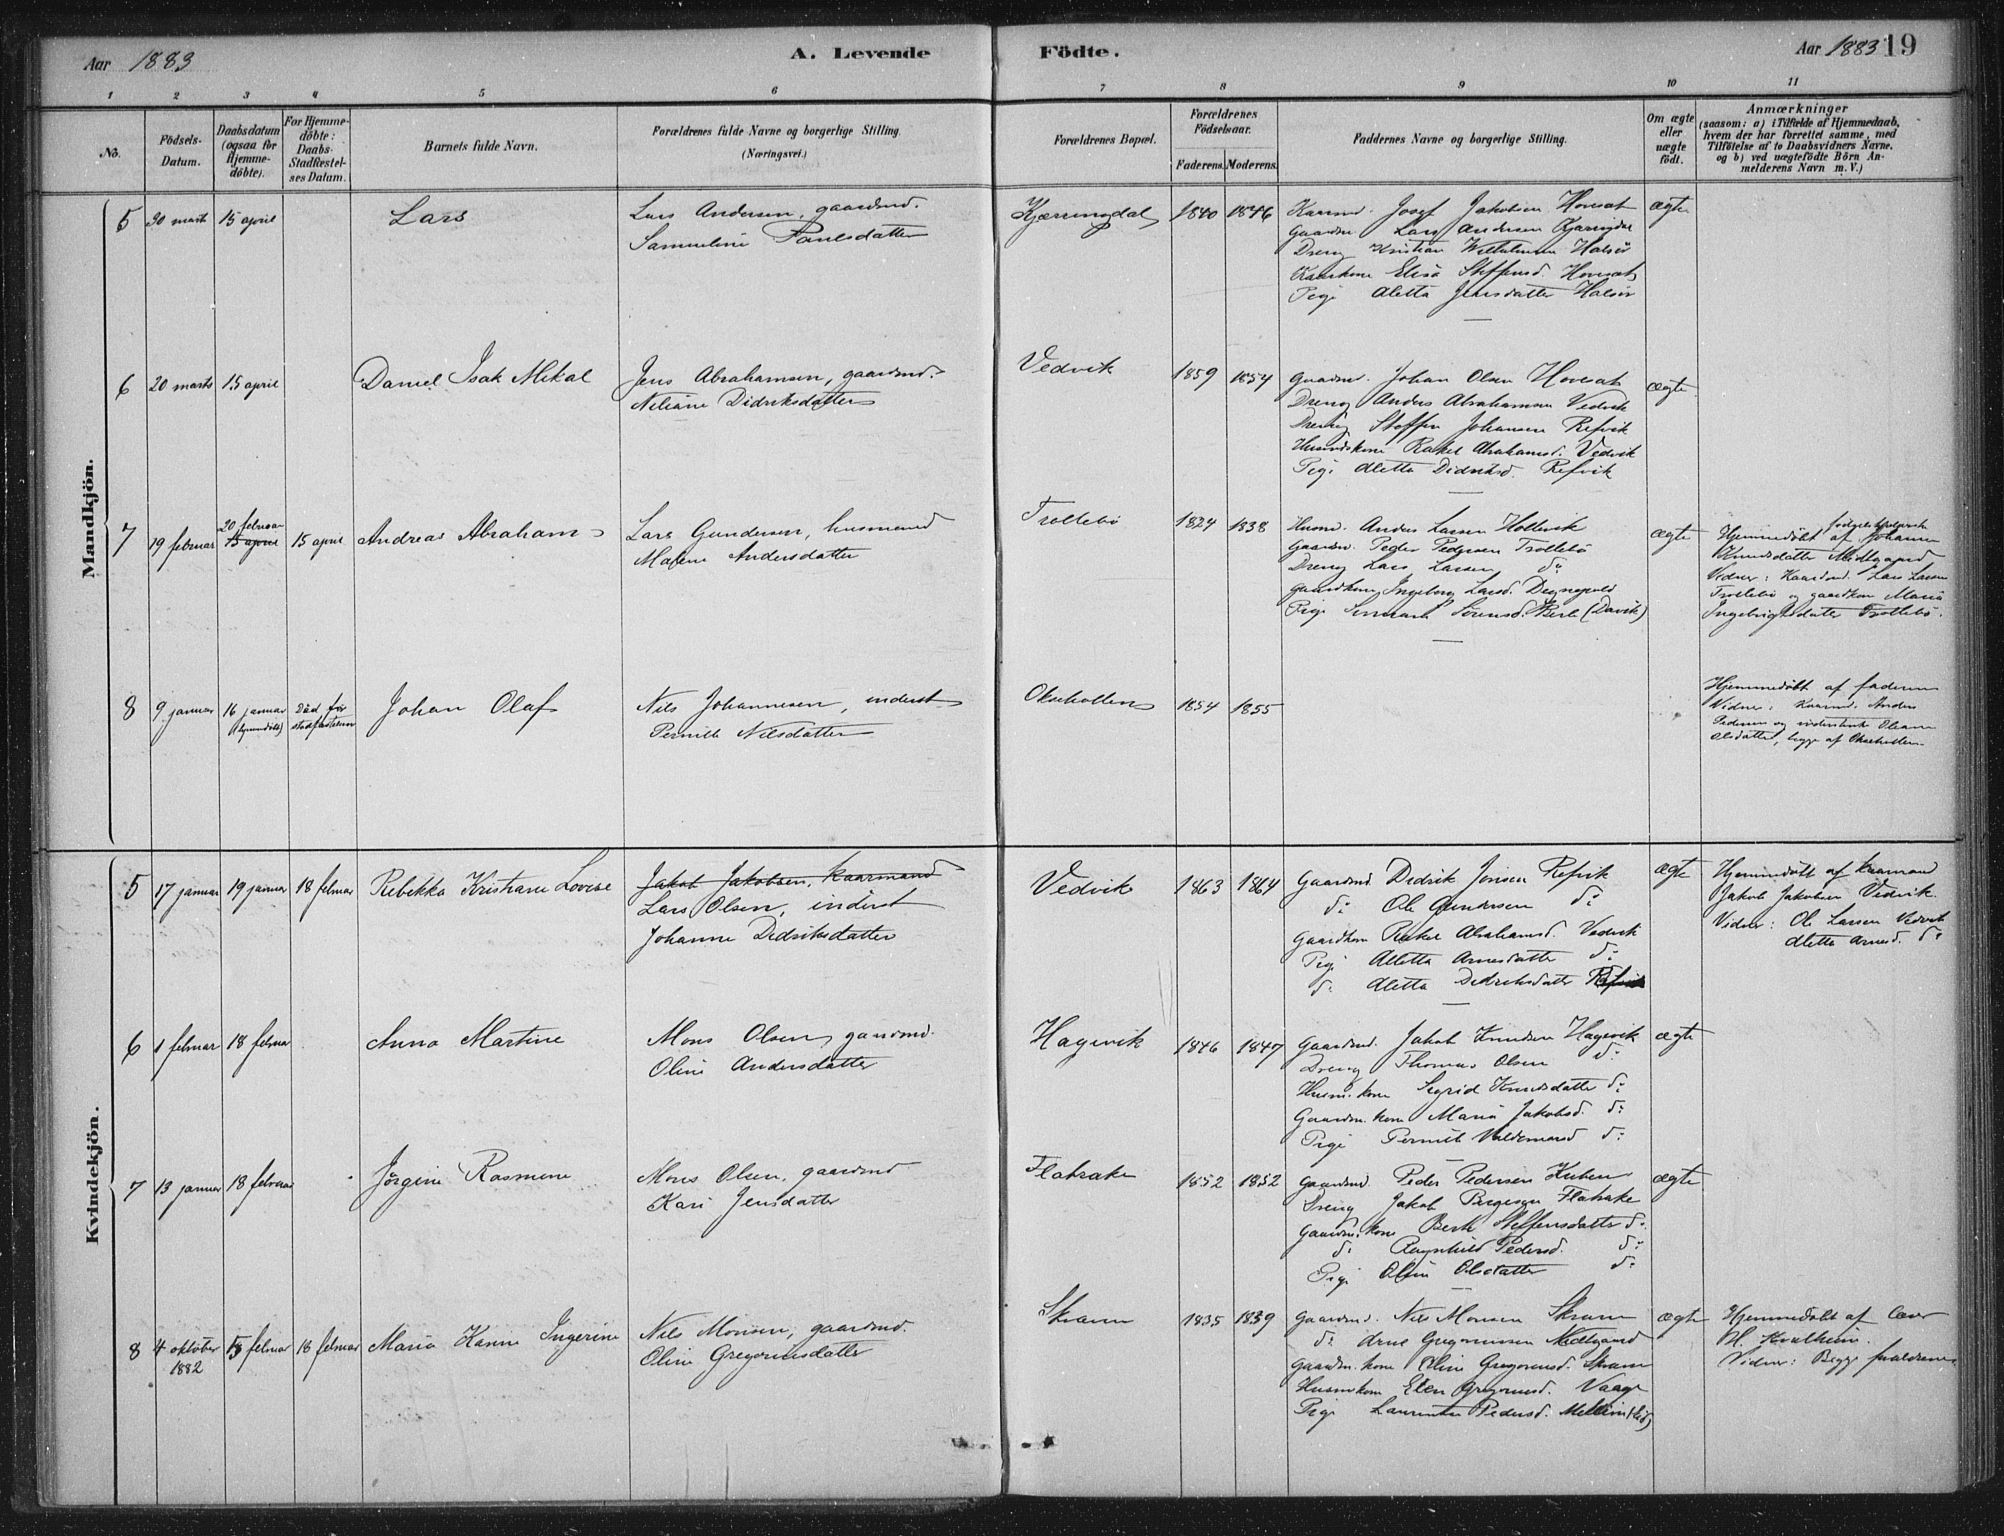 Aar 1883
A. Levende
Födte.
Aar 1883 19
1 2 3 4 5 6 7 8 9 10 11
No.
Födsels-
Datum.
Daabsdatum
(ogsaa for
Hjemme-
døbte).
For Hjemme-
døbte:
Daabs-
Stadfæstel-
ses Datum.
Barnets fulde Navn.
Forældrenes fulde Navne og borgerlige Stilling.
(Næringsvei.)
Forældrenes Bopæl.
Forældrenes
Födselsaar.
Faderens. Moderens.
Faddernes Navne og borgerlige Stilling.
Om ægte
eller
uægte
födt.
Anmærkninger
(saasom: a) i Tilfælde af Hjemmedaab,
hvem der har forrettet samme, med
Tilföielse af to Daabsvidners Navne,
og b) ved uægtefödte Börn An-
melderens Navn m.V.)
Mandkjön.
5 30 marts 15 april
Lars
Lars Andersen, gaardmd.
Samueline Paulsdatter
Kjærringdal
1840 1846
Kaarmd. Josef Jakobsen Hovesat
Gaardm. Lars Andersen
Dreng Kristian Halsör
Elisa Steffensd. Hovesat
Pige Aletta Jensdatter Halsör
ægte
6 20 marts 15 april
Daniel Isak Mikal
Jens Abrahamsen, gaardmd.
Didriksdatter
Vedvik
1859 1854
Gaardmd. Johan Olsen Hovesat
Dreng Anders Abrahamsen Vedvik
Dreng Steffen Johansen Refvik
Husmdskone Rakel Abrahamsd. Vedvik
Pige Aletta Didriksd. Refvik
ægte
7 19 februar
20 februar
15 april
15 april
Andreas Abraham
Lars Gundersen, husmand
Malene Andersdatter
Trollebö
1824 1838
Husmd. Anders Lassen
Gaardm. Peder Pedersen Trollebö
Dreng Lars Larsen do
Gaardkone Ingeborg Larsd.
Pige Sörensd. Berle (Davik)
ægte
Hjemmedöbt af Johanne
Knudsdatter Midtgaard
Vidner: Kaarmd. Lars Larsen
Trollebö og gaardkon Maria
Ingebrigtsdatter Trollebö.
8 9 januar
16 januar
(hjemdöbt)
Död för
Johan Olaf
Nils Johannesen, inderst
Pernille Nilsdatter
Okseholten
1854 1855
Hjemmedöbt af faderen
Vidner: Kaarmd. Anders
Pedersen og
Olsdatter, begge af Okseholten
Kvindekjön.
5 17 januar 19 januar 18 februar
Rebekka Kristiane Lovise
Jakob Jakobsen, kaarmand
Lars Olsen, inderst
Johanne Didriksdatter
Vedvik
1863 1864
Gaardmd. Didrik Jensen Refvik
do Ole Gundersen do
Gaardkone Rakel Abrahamsd. Vedvik
Pige Aletta Arnesdatter do
do Aletta Didriksdatter Refvik
ægte
Hjemmedöbt af kaarmand
Jakob Jakobsen Vedvik.
Vidner: Ole Larsen Vedvik
Aletta Arnesd. do
6 1 februar 18 februar
Anna Martine
Mons Olsen, gaardmd.
Oline Andersdatter
Hagevik
1846 1847
Gaardmd. Jakob Knudsen Hagevik
Dreng Thomas Olsen do
Husm. kone Sigrid Knudsdatter do
Gaardm. kone Maria Jakobsd. do
Pige Pernille Valdemarsd do
ægte
7 13 januar 18 februar
Jörgine Rasmine
Mons Olsen, gaardmd
Kari Jensdatter
Flatrake
1852 1852
Gaardmd. Peder Pedersen
Dreng Jakob Flatrake
Gaardm. kone Berte Steffensdatter do
do Ragnhild Pedersd. do
Pige Oline Olsdatter do
ægte
8 4 oktober
1882
5 februar 18 februar
Maria Hanne Ingerine
Nils Monsen, gaardmd.
Oline Gregoriusdatter
Skram
1835 1839
Gaardmd. Nils Monsen Skram
do Arne Gregoriussen Midtgaard
Gaardm. kone Oline Gregoriusd. Skram
Husmkone Elen Gregoriusd. Vaage
Pige Laurentse Pedersd.
ægte
Hjemmedöbt af Lærer
H. Kvalheim.
Vidner: Begge forældrene.